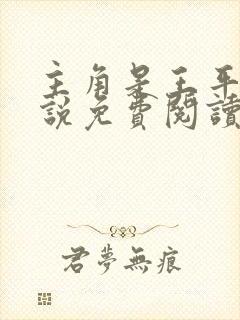 主角是王平
說免費閱讀
君夢無痕